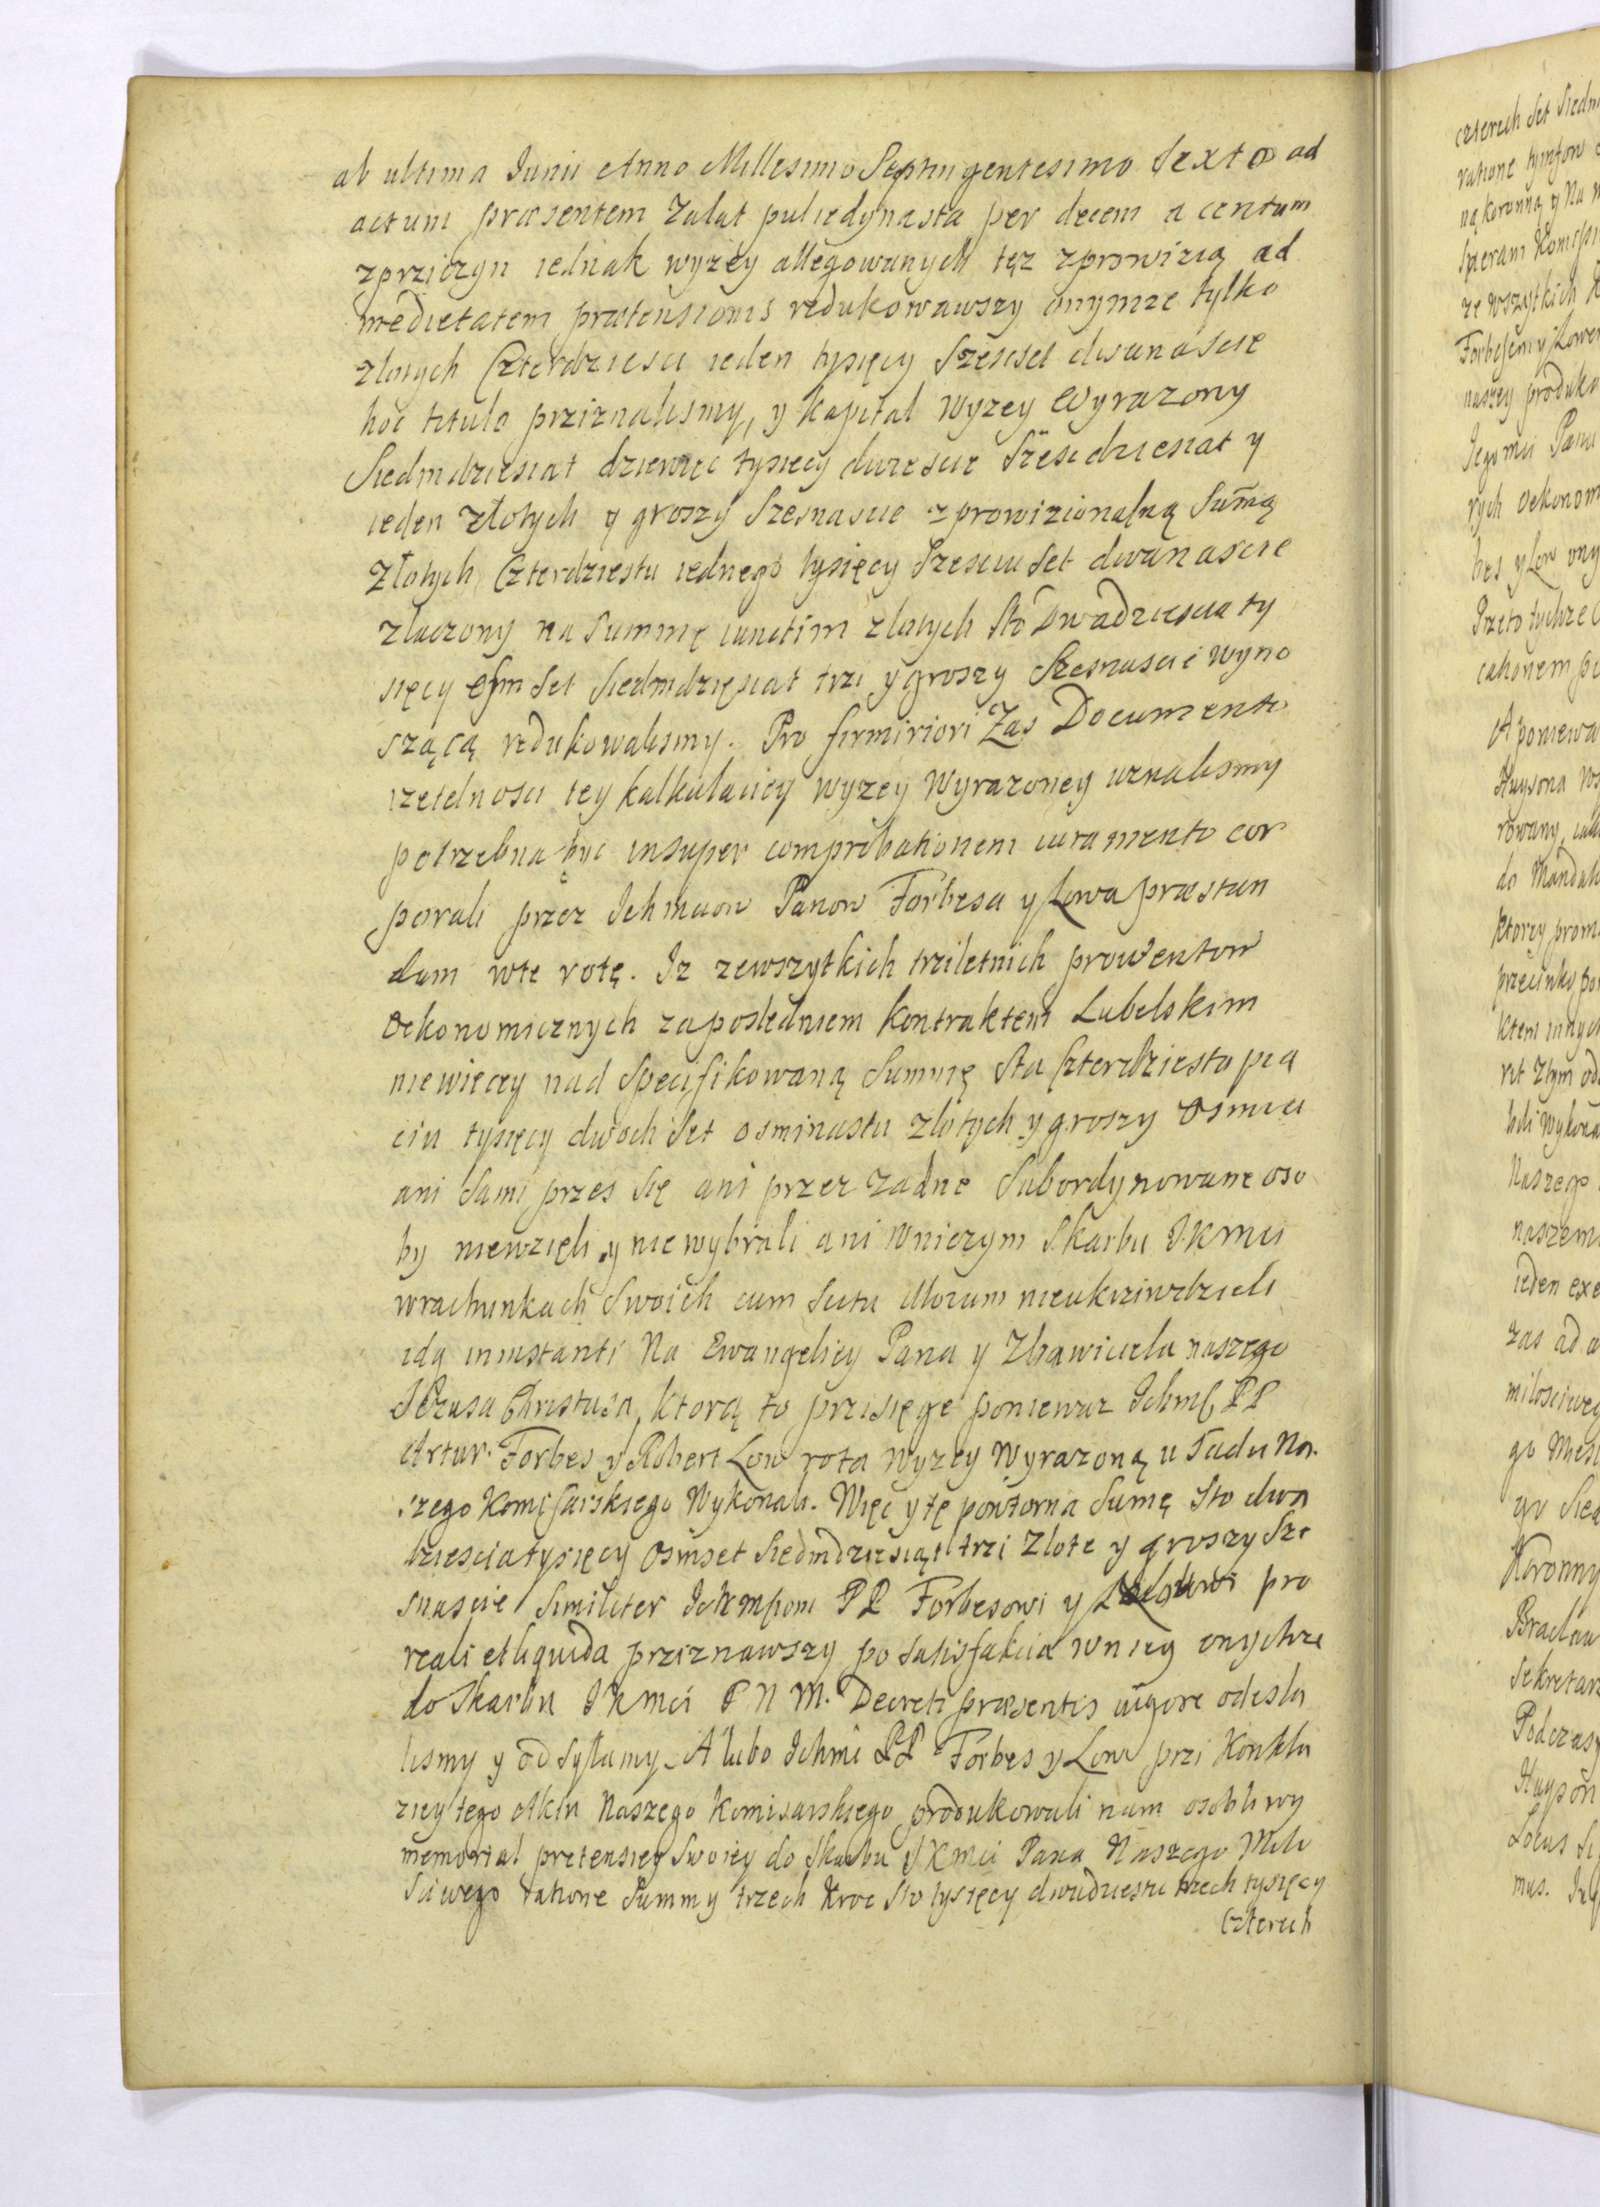 ab ultima Junii Anno Millesimo Septingentesimo Sexto ad
actum præsentem Zalat puliedynasta per decem a centum
zprziczyn iednak wyzey allegowanych tęz zprowizią ad
medietatem prætensionis redukowawszy onymze tylko
zlotych Czterdziesci ieden tysięcy Szescset dwanascie
hoc titulo prziznalismy, y kapital wyzey Wyrazony
Siedmdziesiat dziewięc tysięcy dwiescie Szescdziesiat y
ieden złotych y groszy Szesnascie z prowizionalną Sum̃ą
Złotych Czterdziestu iednego tysięcy Szesciu Set dwanascie
złaczony na Summę iunctim zlotych Sto Dwadziescia ty
sięcy osm Set Siedmdzięsiat trzi y groszy Szesnascie wyno
szącą redukowalismy. Pro firmiriori Zas Documento
rzetelnosci tey kalkulacicy wyzey Wyrazoney uznalismy
potrzebna być insuper comprobationem iuramento cor
porali przez Ichmciow Panow Forbesa y Lowa præstan
dam wte rotę. Iz zewszytkich trziletnich prowentow
Oekonomicznych zaposledniem kontraktem Lubelskim
niewięcey nad Specifikowaną Summę Sta Czterdziestu pia
ciu tysięcy dwoch Set osminastu zlotych y groszy Osmiu
ani Sami przes Się ani przez zadne Subordynowane oso
by niewzięli y nie wybrali ani wniczym Skarbu JKMci
wrachunkach Swoich cum Scitu illorum nieukrziwdzieli
idą ininstanti Na Ewangelicy Pana y Zbawiciela naszego
JEzusa Christusa, ktorą to przisięgę poniewaz Ichmć PP
Artur Forbes y Robert Low rota wyzey Wyrazoną u Sadu Na.
szego Komissarskiego Wykonali. Więc y tę powtorna Sumę Sto dwa
dziescia tysięcy Osmset Siedmdziesiąt trzi Zlote y groszy Sze
snascie Similiter Ichmsciom PP Forbesowi y pro
reali et liquida prziznawszy po satisfakcia wniey onychze
do Skarbu JKMci P N M. Decreti præsentis vigore odesla
lismy y odsyłamy. A lubo Ichmć PP Forbes y Low przi Konklu
ziey tego Aktu Naszego Komisarskiego produkowali nam osobliwy
memorial pretensiey Swoiey do Skarbu JKMci Pana Naszego Milo
sciwego ratione Summy trzech Kroc Sto tysięcy dwudziestu trzech tysięcy
Czterech
czterech Set Siedm
ratione tymfow
ną koronną y Na
ze wszytkich
Forbesem y Lowem
naszey produko
Jegomci Panu
rych oekonom
bes y Low ony
Przeto tychze
A poniewa
Haysona
rowany
do Mandat
ktorzy
Naszego
naszem
ieden exe
zas ad a
milosciweg
go
Koronny
Braclaw
Sekretarz
Podczaszy
Hayson
Locus Si
mus.